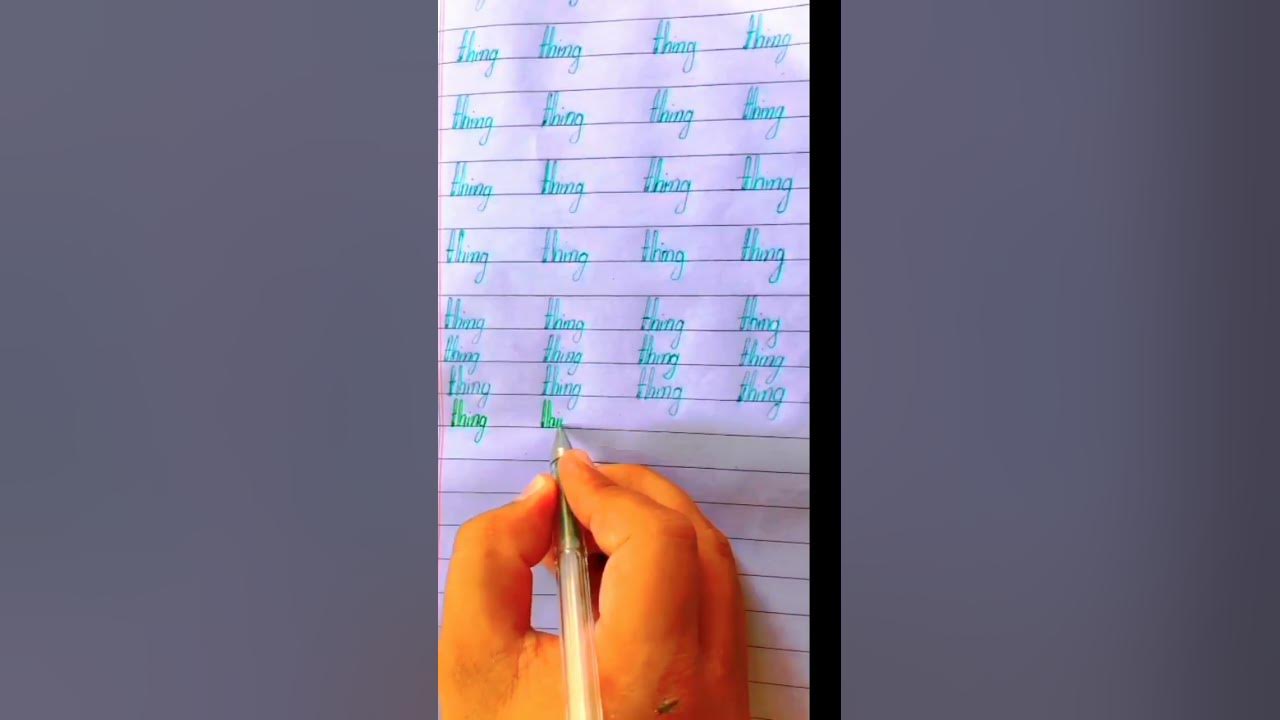 thing thing thing thing
thing thing thing thing
thing thing thing thing
thing thing thing thing
thing thing thing thing
thing thing thing thing
thing thing thing thing
thing thi